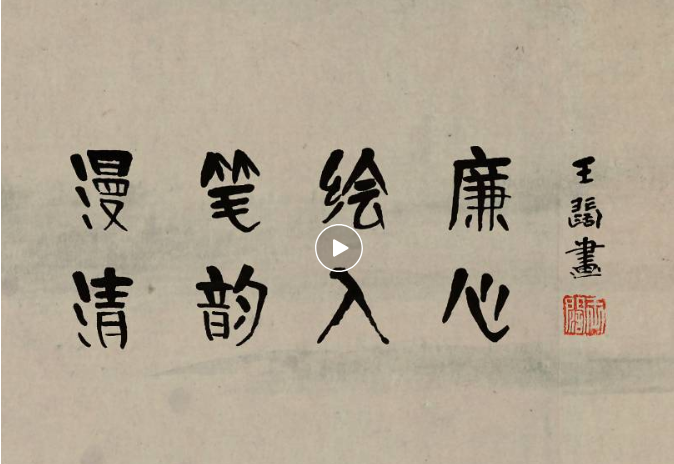 漫笔绘廉
清韵入心
王
畫